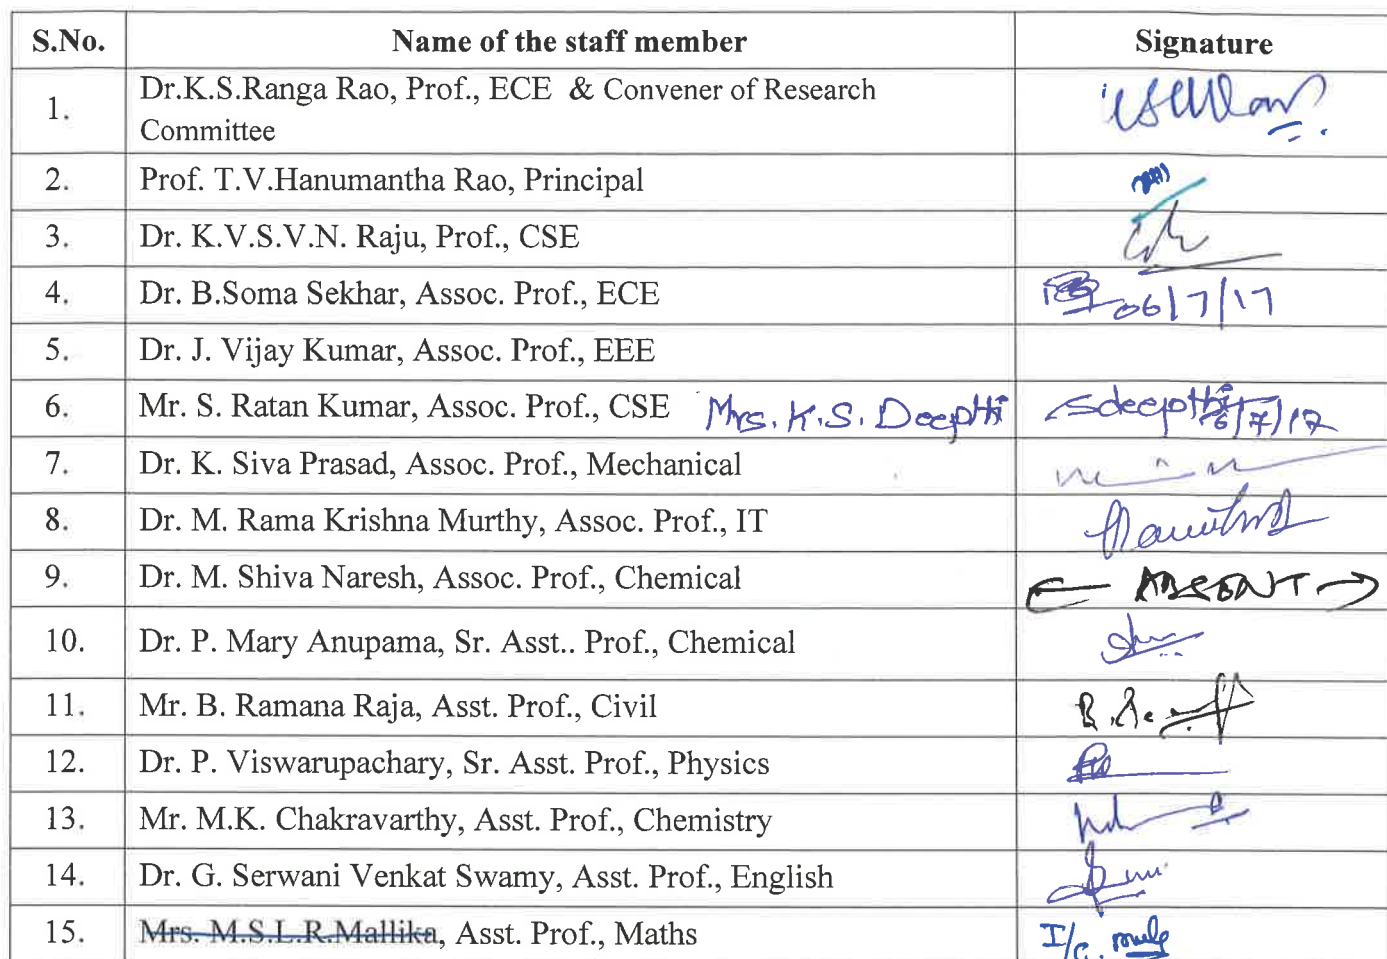 S.No. Name of the staff member Signature
1. Dr.K.S.Ranga Rao, Prof., ECE & Convener of Research
Committee
2. Prof. T.V.Hanumantha Rao, Principal
3. Dr. K.V.S.V.N. Raju, Prof., CSE
4. Dr. B.Soma Sekhar, Assoc. Prof., ECE 06/7/17
5. Dr. J. Vijay Kumar, Assoc. Prof., EEE
6. Mr. S. Ratan Kumar, Assoc. Prof., CSE Mrs. K.S. Deepthi Sdeepthi 6/7/17
7. Dr. K. Siva Prasad, Assoc. Prof., Mechanical
8. Dr. M. Rama Krishna Murthy, Assoc. Prof., IT
9. Dr. M. Shiva Naresh, Assoc. Prof., Chemical ABSENT
10. Dr. P. Mary Anupama, Sr. Asst.. Prof., Chemical
11. Mr. B. Ramana Raja, Asst. Prof., Civil
12. Dr. P. Viswarupachary, Sr. Asst. Prof., Physics
13. Mr. M.K. Chakravarthy, Asst. Prof., Chemistry
14. Dr. G. Serwani Venkat Swamy, Asst. Prof., English
15. Mrs. M.S.L.R.Mallika, Asst. Prof., Maths